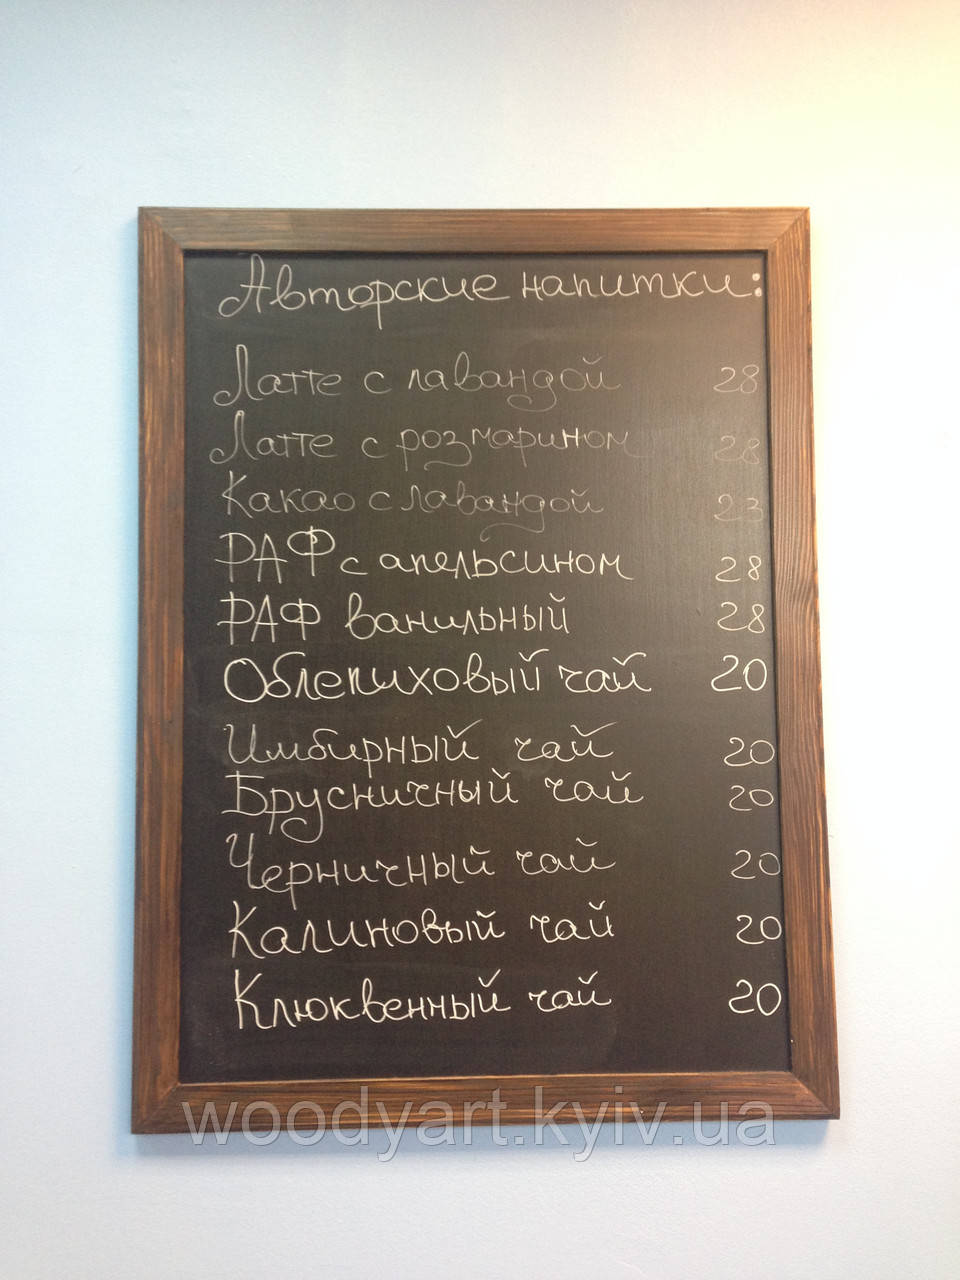 Авторские напитки:
Латте с лавандой 28
Латте с розмарином 28
Какао с лавандой 23
РАФ с апельсином 28
РАФ ванильный 28
Облепиховый чай 20
Имбирный чай 20
Брусничный чай 20
Черничный чай 20
Калиновый чай 20
Клюквенный чай 20
woodyart.kyiv.ua